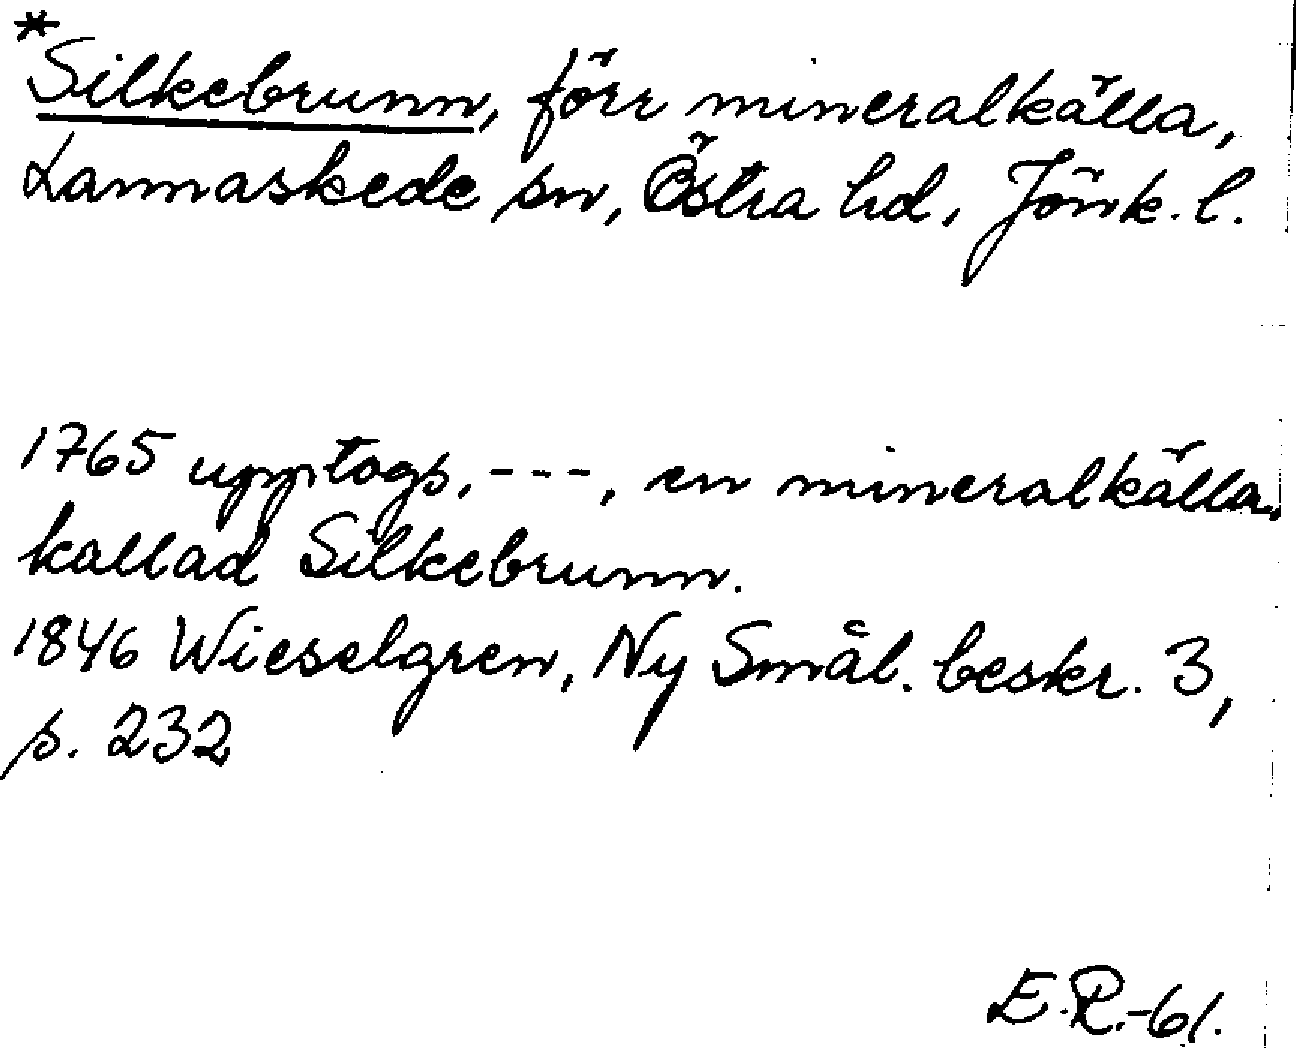 *
Silkebrunn, förr mineralkälla,
Lannaskede sn, Östra hd, Jönk. l.
1765 upptogs, ---, en mineralkälla,
kallad Silkebrunn.
1846 Wieselgren, Ny Smål. beskr. 3,
s. 232
E.R.-61.